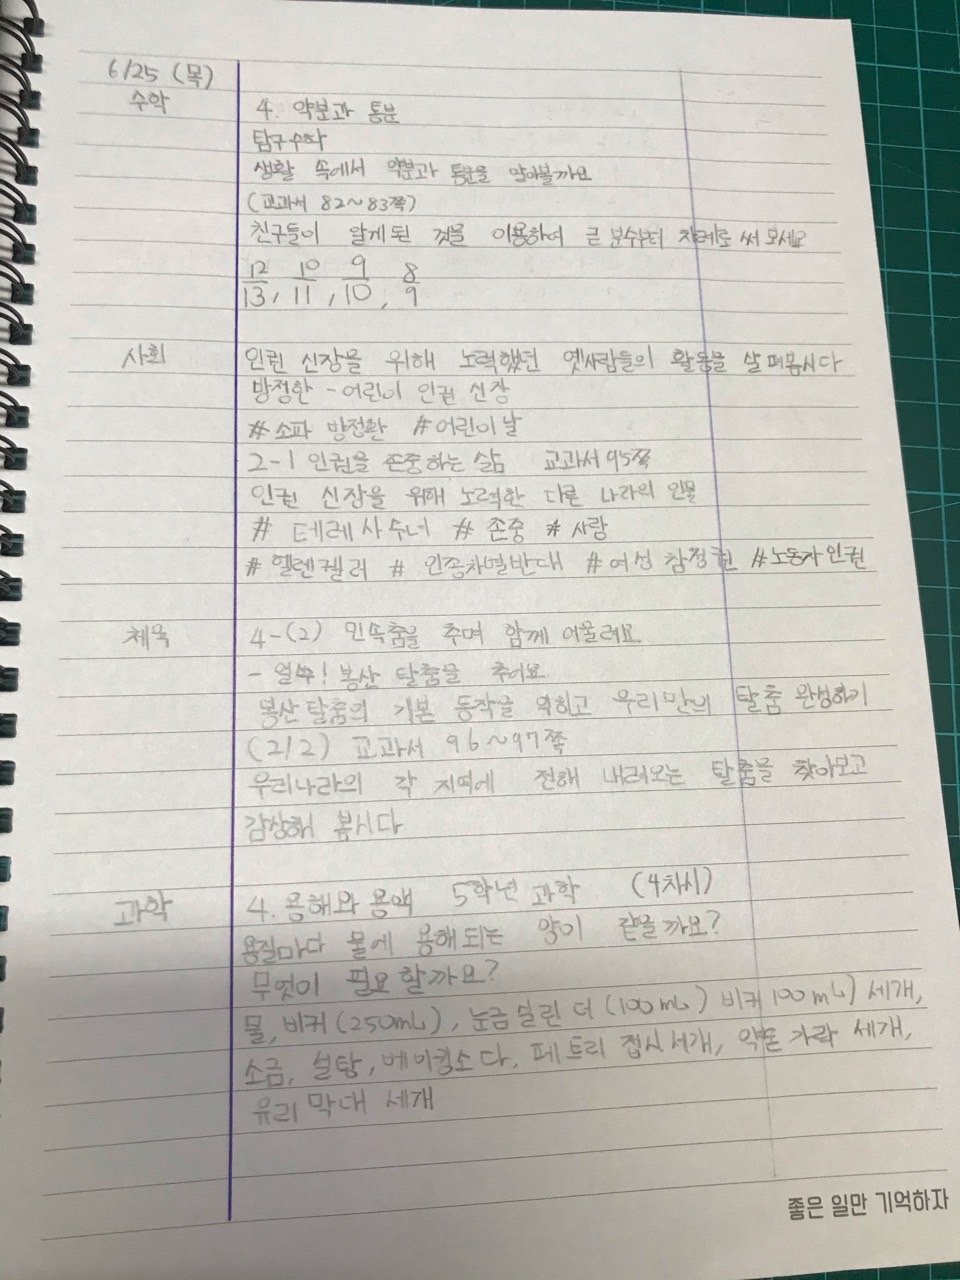 6/25 (목)
수학 4. 약분과 통분
탐구수학
생활 속에서 약분과 통분을 알아볼까요
(교과서 82~83쪽)
친구들이 알게된 것을 이용하여 큰 분수부터 차례로 써 보세요
12/13, 10/11, 9/10, 8/9
사회 인권 신장을 위해 노력했던 옛사람들의 활동을 살펴봅시다
방정환 - 어린이 인권 신장
# 소파 방정환 #어린이날
2-1 인권을 존중하는 삶 교과서 95쪽
인권 신장을 위해 노력한 다른 나라의 인물
# 테레사수녀 # 존중 # 사랑
# 헬렌켈러 # 인종차별반대 # 여성 참정권 #노동자인권
체육 4-(2) 민속춤을 추며 함께 어울려요
- 얼쑤! 봉산 탈춤을 추어요
봉산탈춤의 기본 동작을 익히고 우리만의 탈춤 완성하기
(2/2) 교과서 96~97쪽
우리나라의 각 지역에 전해 내려오는 탈춤을 찾아보고
감상해 봅시다
과학 4. 용해와 용액 5학년 과학 (4차시)
용질마다 물에 용해되는 양이 같을까요?
무엇이 필요할까요?
물, 비커(250mL), 눈금실린더(100mL) 비커 100mL) 세개,
소금, 설탕, 베이킹소다, 페트리 접시 세개, 약숟가락 세개,
유리 막대 세개
좋은 일만 기억하자